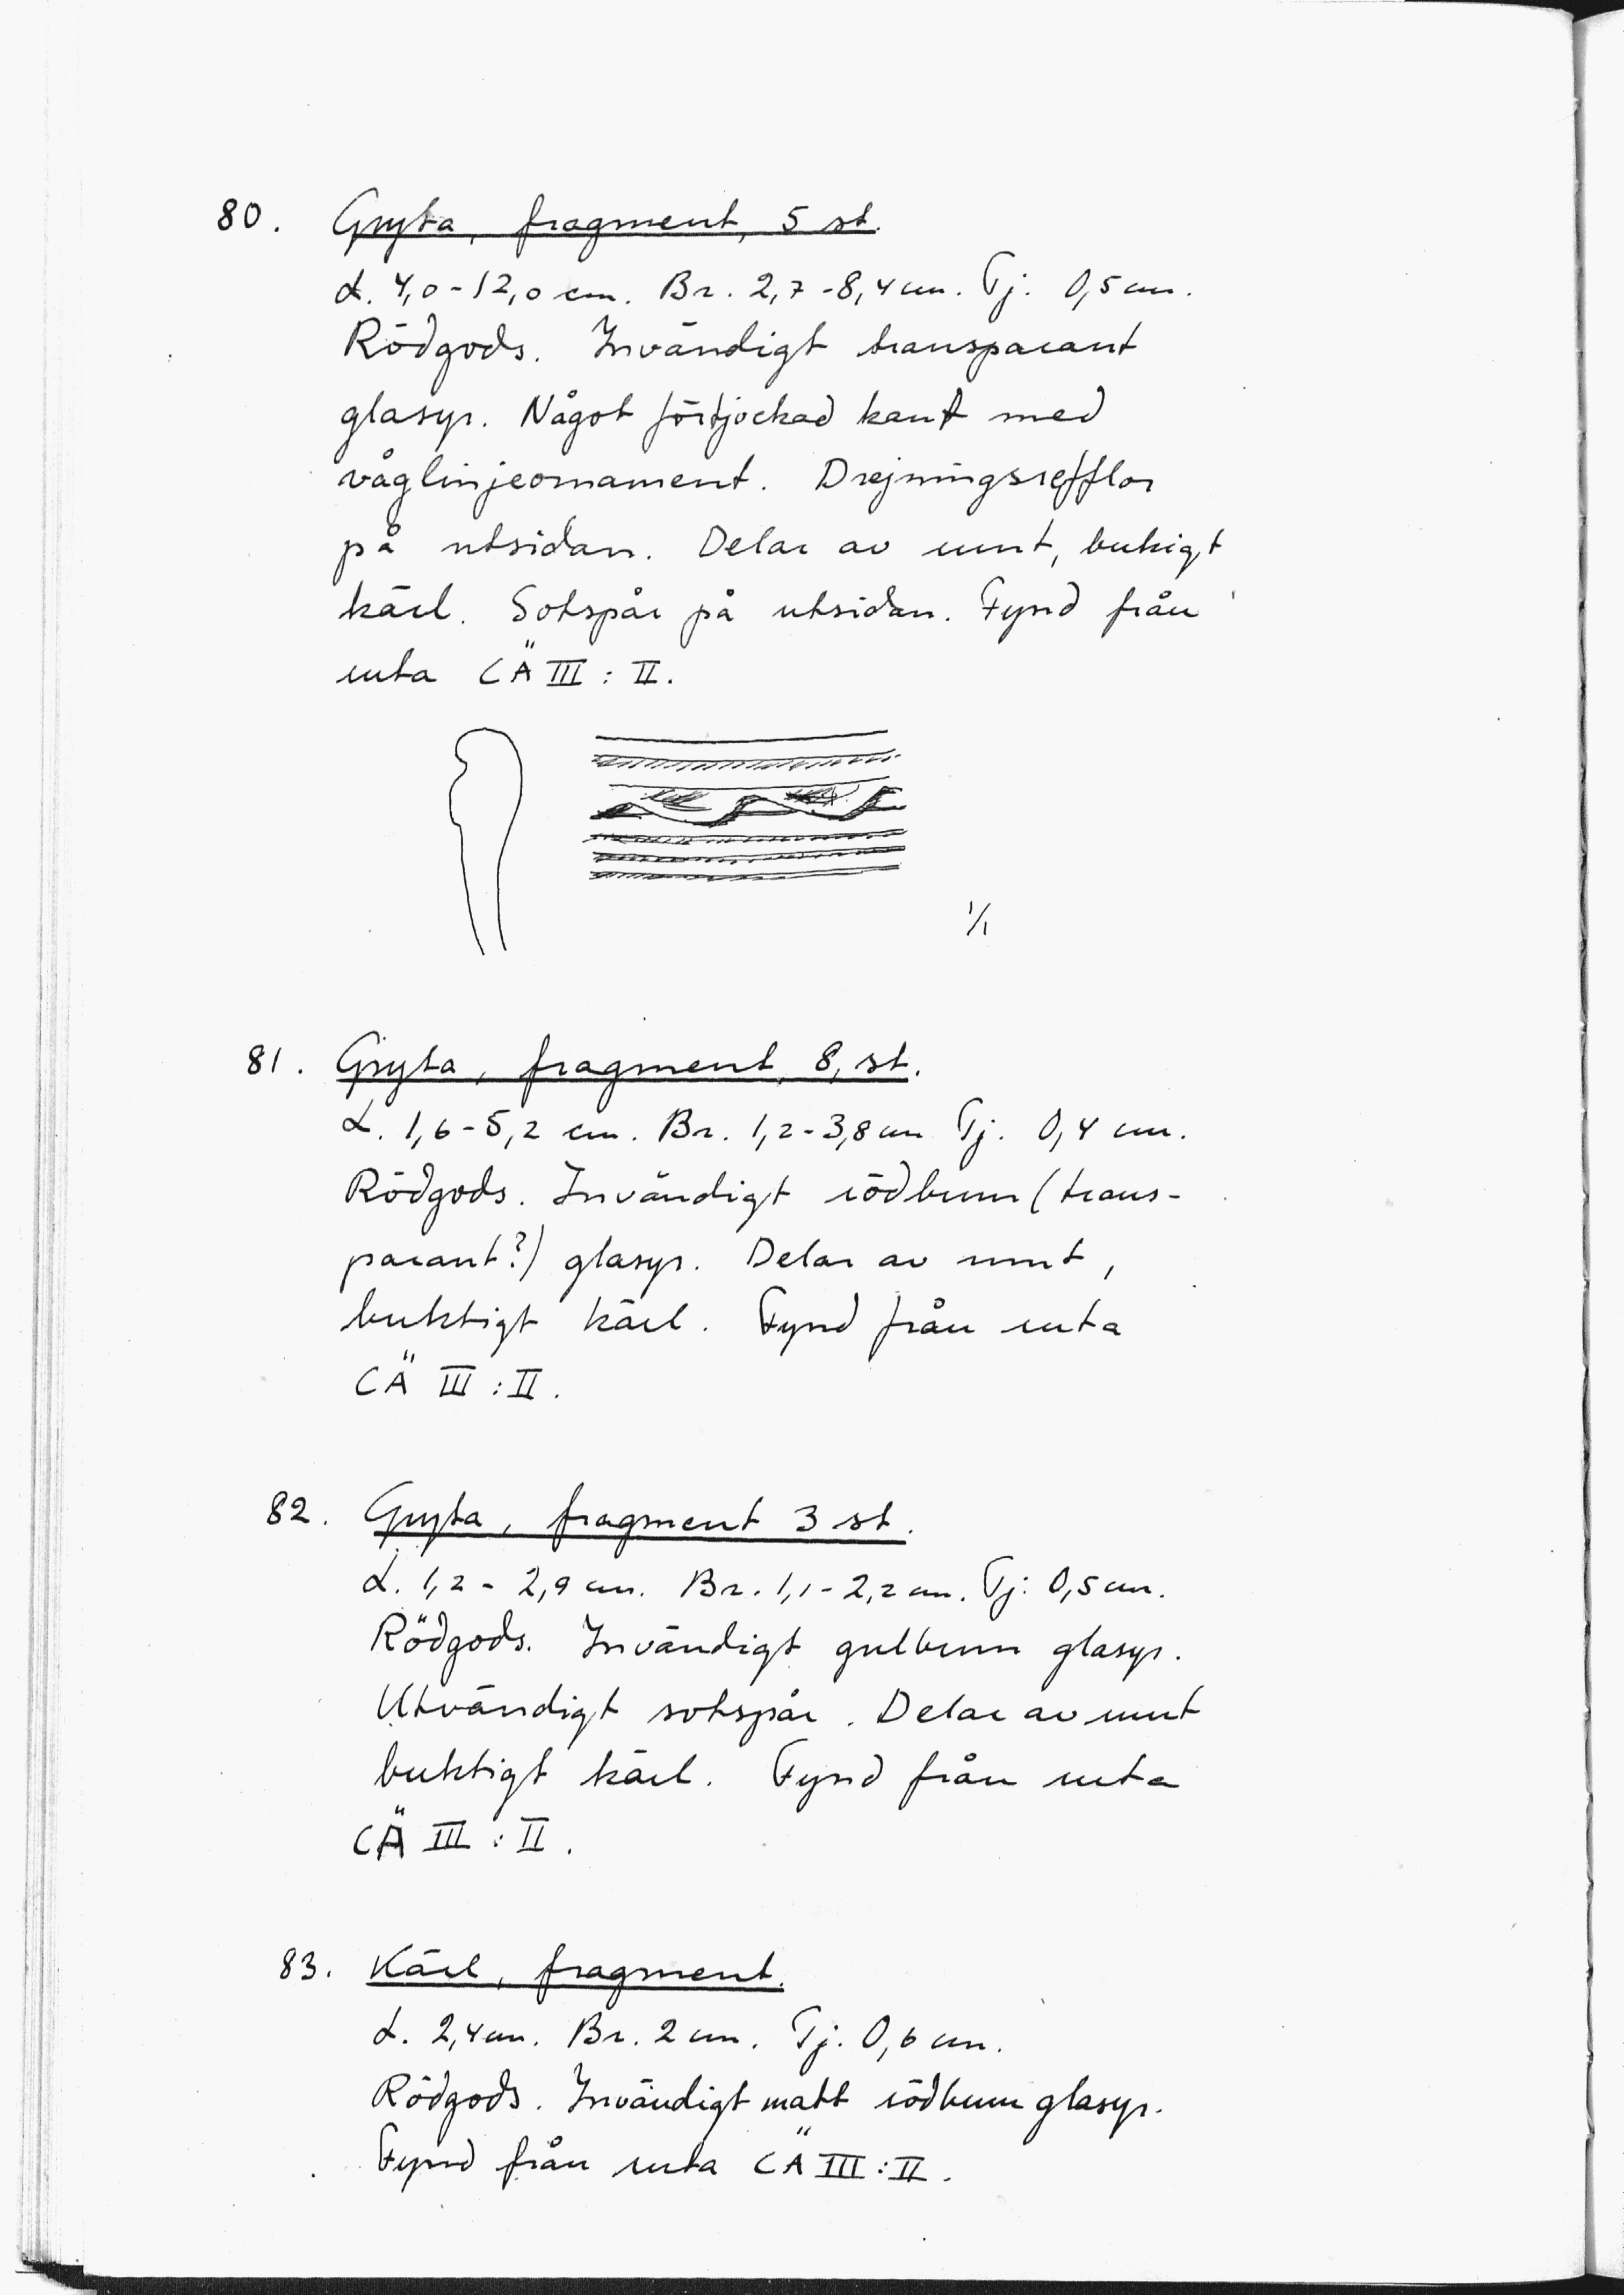 80. Gryta, fragment, 5 st.
L. 4,0-12,0 cm. Br. 2,7-8,4 cm. Tj. 0,5 cm.
Rödgods. Invändigt transparant
glasyr. Något förtjockad kant med
våglinjeornament. Drejningsrefflor
på utsidan. Delar av runt, bukigt
kärl. Sotspår på utsidan. Fynd från
ruta CÄ III : II.
1/1
81. Gryta, fragment, 8, st.
L. 1,6-5,2 cm. Br. 1,2-3,8 cm Tj. 0,4 cm.
Rödgods. Invändigt rödbrun (trans-
parant?) glasyr. Delar av runt,
buktigt kärl. Fynd från ruta
CÄ III : II.
82. Gryta, fragment 3 st.
L. 1,2 - 2,9 cm. Br. 1,1-2,2 cm. Tj: 0,5 cm.
Rödgods. Invändigt gulbrun glasyr.
Utvändigt sotspår. Delar av runt
buktigt kärl. Fynd från ruta
CÄ III : II.
83. Kärl, fragment.
L. 2,4 cm. Br. 2 cm. Tj. 0,6 cm.
Rödgods. Invändigt matt rödbrun glasyr.
Fynd från ruta CÄ III : II.